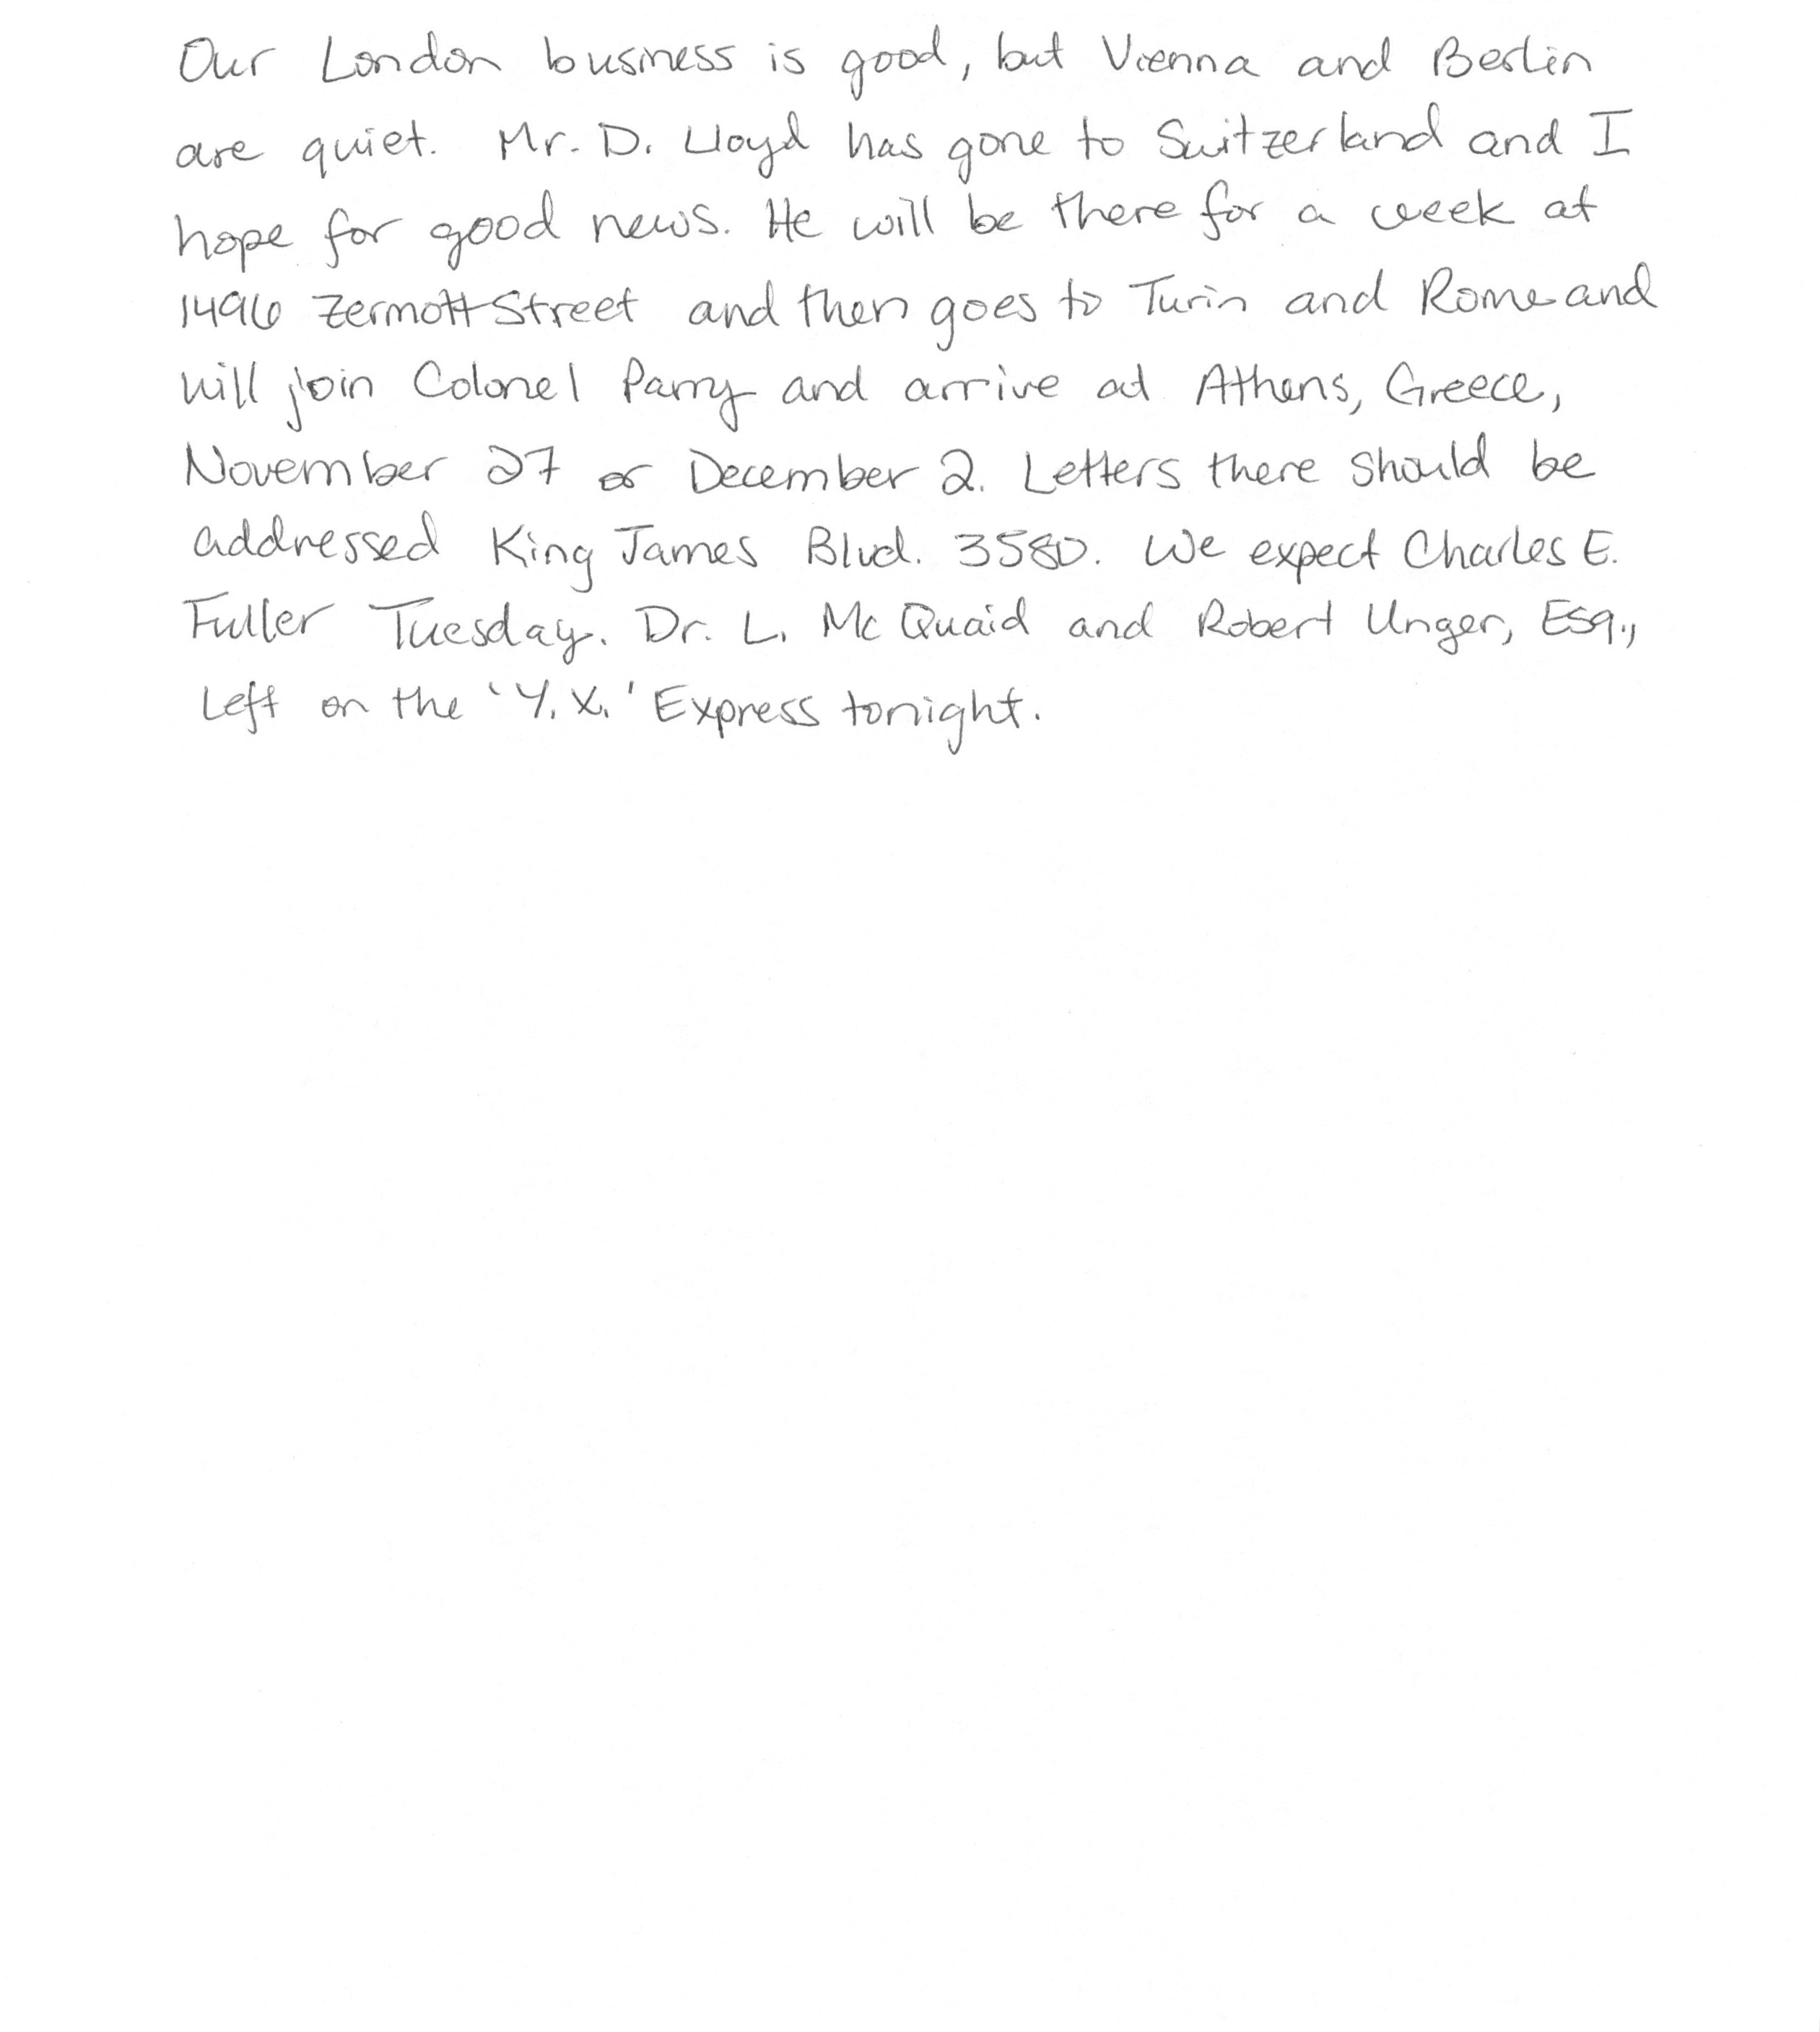 Our London business is good, but Vienna and Berlin
are quiet. Mr. D. Lloyd has gone to Switzerland and I
hope for good news. He will be there for a week at
1496 Zermott Street and then goes to Turin and Rome and
will join Colonel Parry and arrive at Athens, Greece,
November 27 or December 2. Letters there should be
addressed King James Blvd. 3580. We expect Charles E.
Fuller Tuesday. Dr. L. McQuaid and Robert Unger, Esq.,
left on the 'Y.X.' Express tonight.